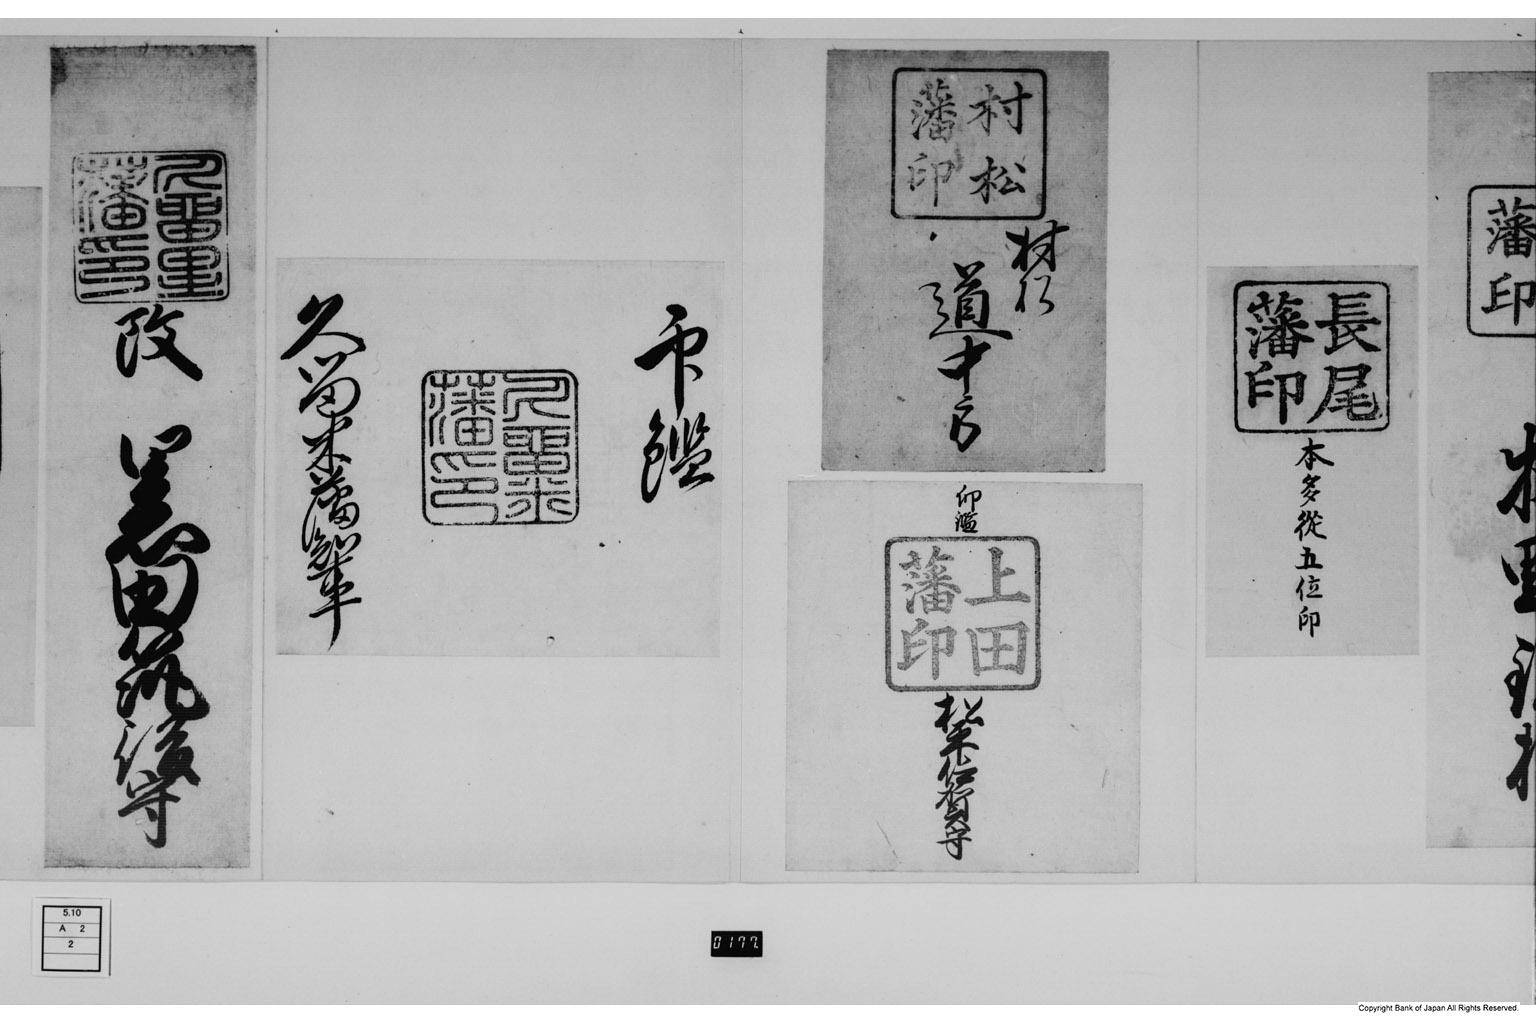 藩
印
長尾
藩印
本多從五位印
村松
藩印
村松
道中方
印鑑
上田
藩印
松平伊賀守
印鑑
久留米
藩印
久留米藩
久留里
藩印
改
黒田筑後守
5.10
A 2
2
0177
Copyright Bank of Japan All Rights Reserved.